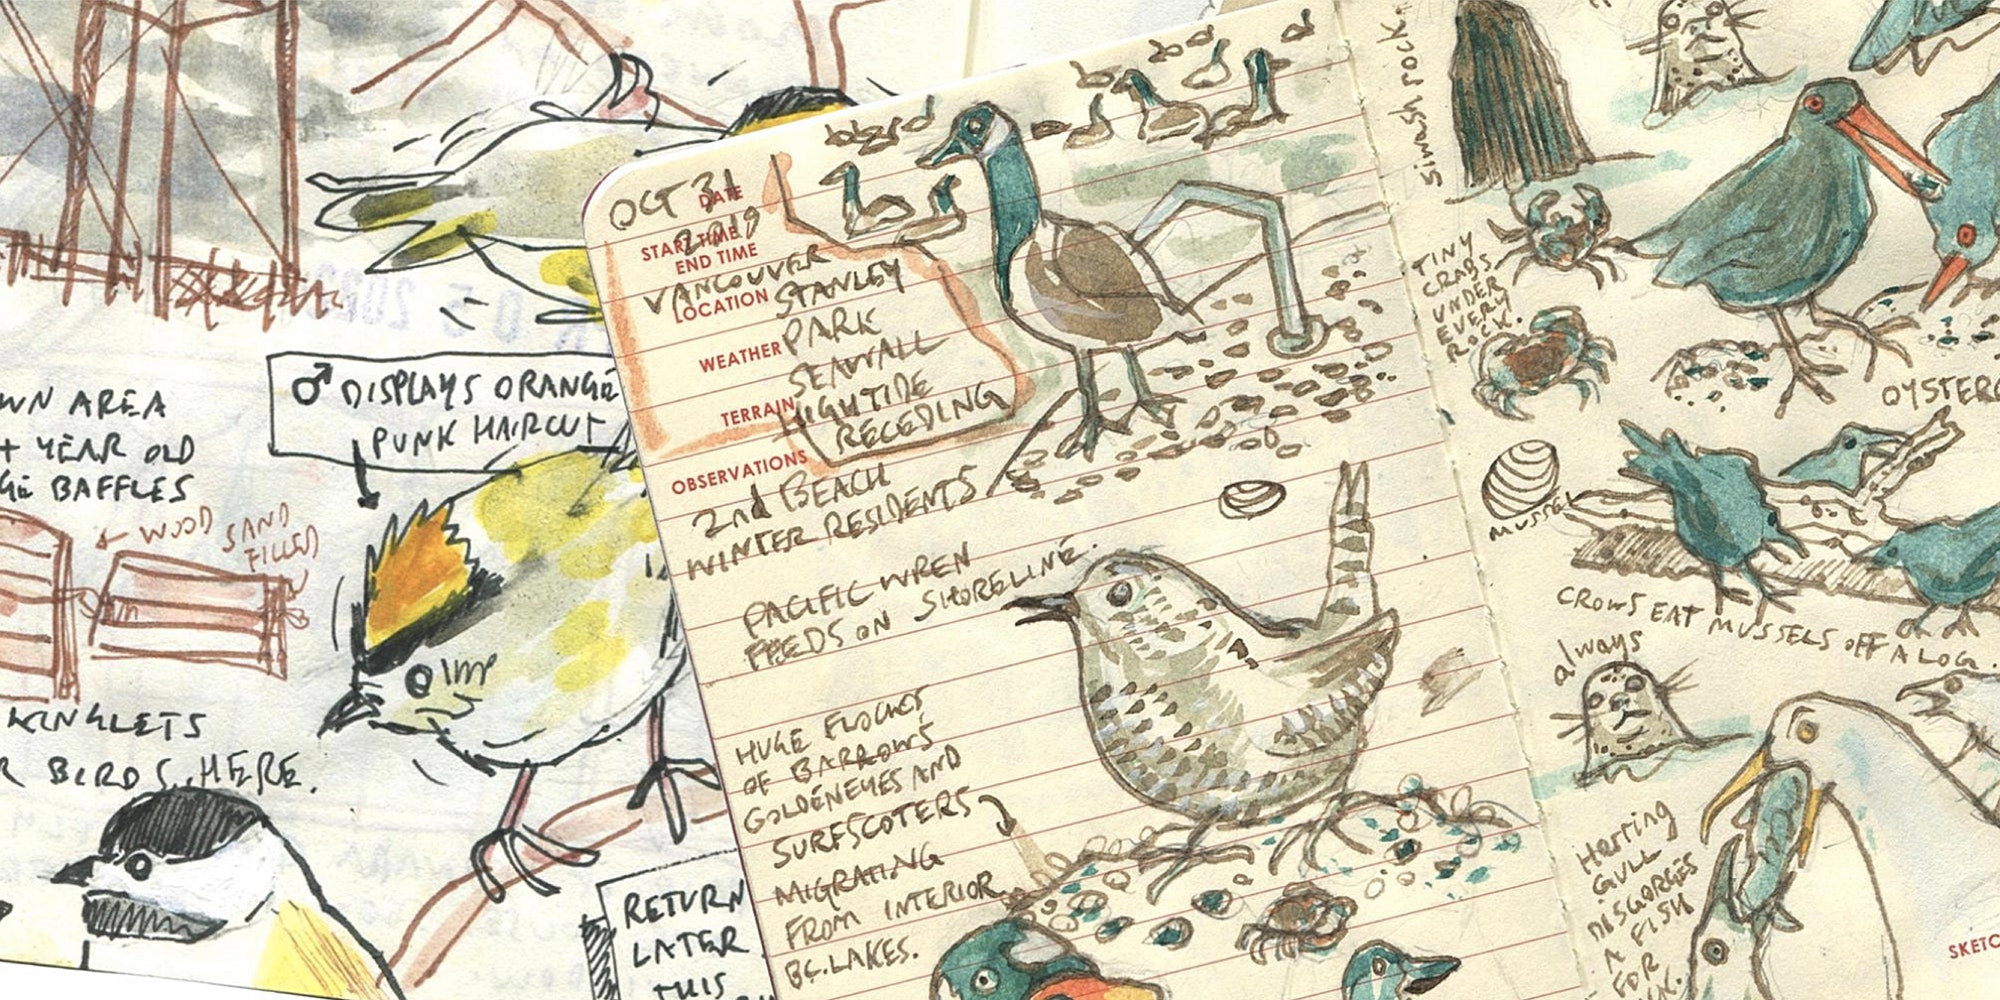 ♂ DISPLAYS ORANGE
PUNK HAIRCUT
WN AREA
+ YEAR OLD
GE BAFFLES
← WOOD
SAND
FILLED
KINGLETS
R BIRDS HERE.
RETURN
LATER
THIS
OCT 31
DATE
2019
START TIME
END TIME
VANCOUVER
LOCATION
STANLEY
PARK
WEATHER
SEAWALL
HIGH TIDE
TERRAIN
RECEDING
OBSERVATIONS
2nd BEACH
WINTER RESIDENTS
PACIFIC WREN
FEEDS ON SHORELINE.
HUGE FLOCKS
OF BARROW'S
GOLDENEYES AND
SURFSCOTERS
MIGRATING
FROM INTERIOR
BC. LAKES.
Siwash rock.
TINY
CRABS
UNDER
EVERY
ROCK.
OYSTERC
MUSSEL
CROWS EAT MUSSELS OFF A LOG.
always
Herring
GULL
DISGORGES
A FISH
FOR
SKETC